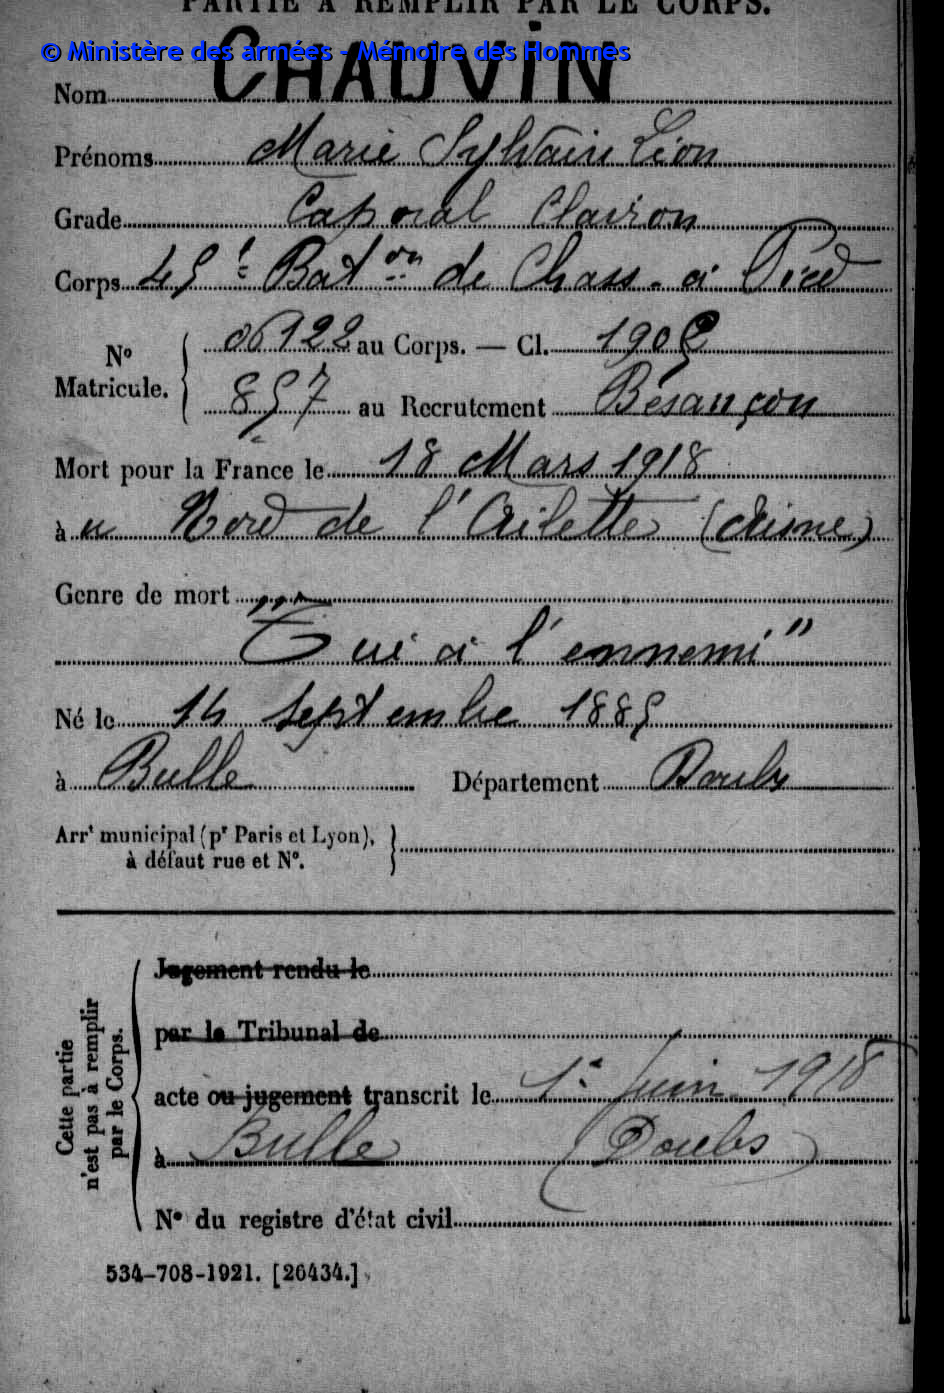 PARTIE À REMPLIR PAR LE CORPS.
© Ministère des armées - Mémoire des Hommes
Nom CHAUVIN
Prénoms Marie Sylvain Léon
Grade Caporal Clairon
Corps 45e Baton de Chass. à Pied
No Matricule. { 06122 au Corps. — Cl. 1905
857 au Recrutement Besançon
Mort pour la France le 18 Mars 1918
à u Nord de l'Ailette (Aisne)
Genre de mort
"Tué à l'ennemi"
Né le 14 septembre 1885
à Bulle Département Doubs
Arrt municipal (pr Paris et Lyon),
à défaut rue et No.
Cette partie n'est pas à remplir par le Corps.
Jugement rendu le
par le Tribunal de
acte ou jugement transcrit le 1er Juin 1918
à Bulle (Doubs)
No du registre d'état civil
534-708-1921. [26434.]